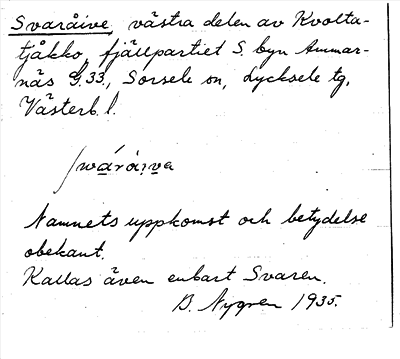 Svaråive, västra delen av Kvolta-
tjåkko, fjällpartiet S. byn Ammar-
näs G.33, Sorsele sn, Lycksele tg,
Västerb. l.
Namnets uppkomst och betydelse
obekant.
Kallas även enbart Svaren.
B. Nygren 1935.